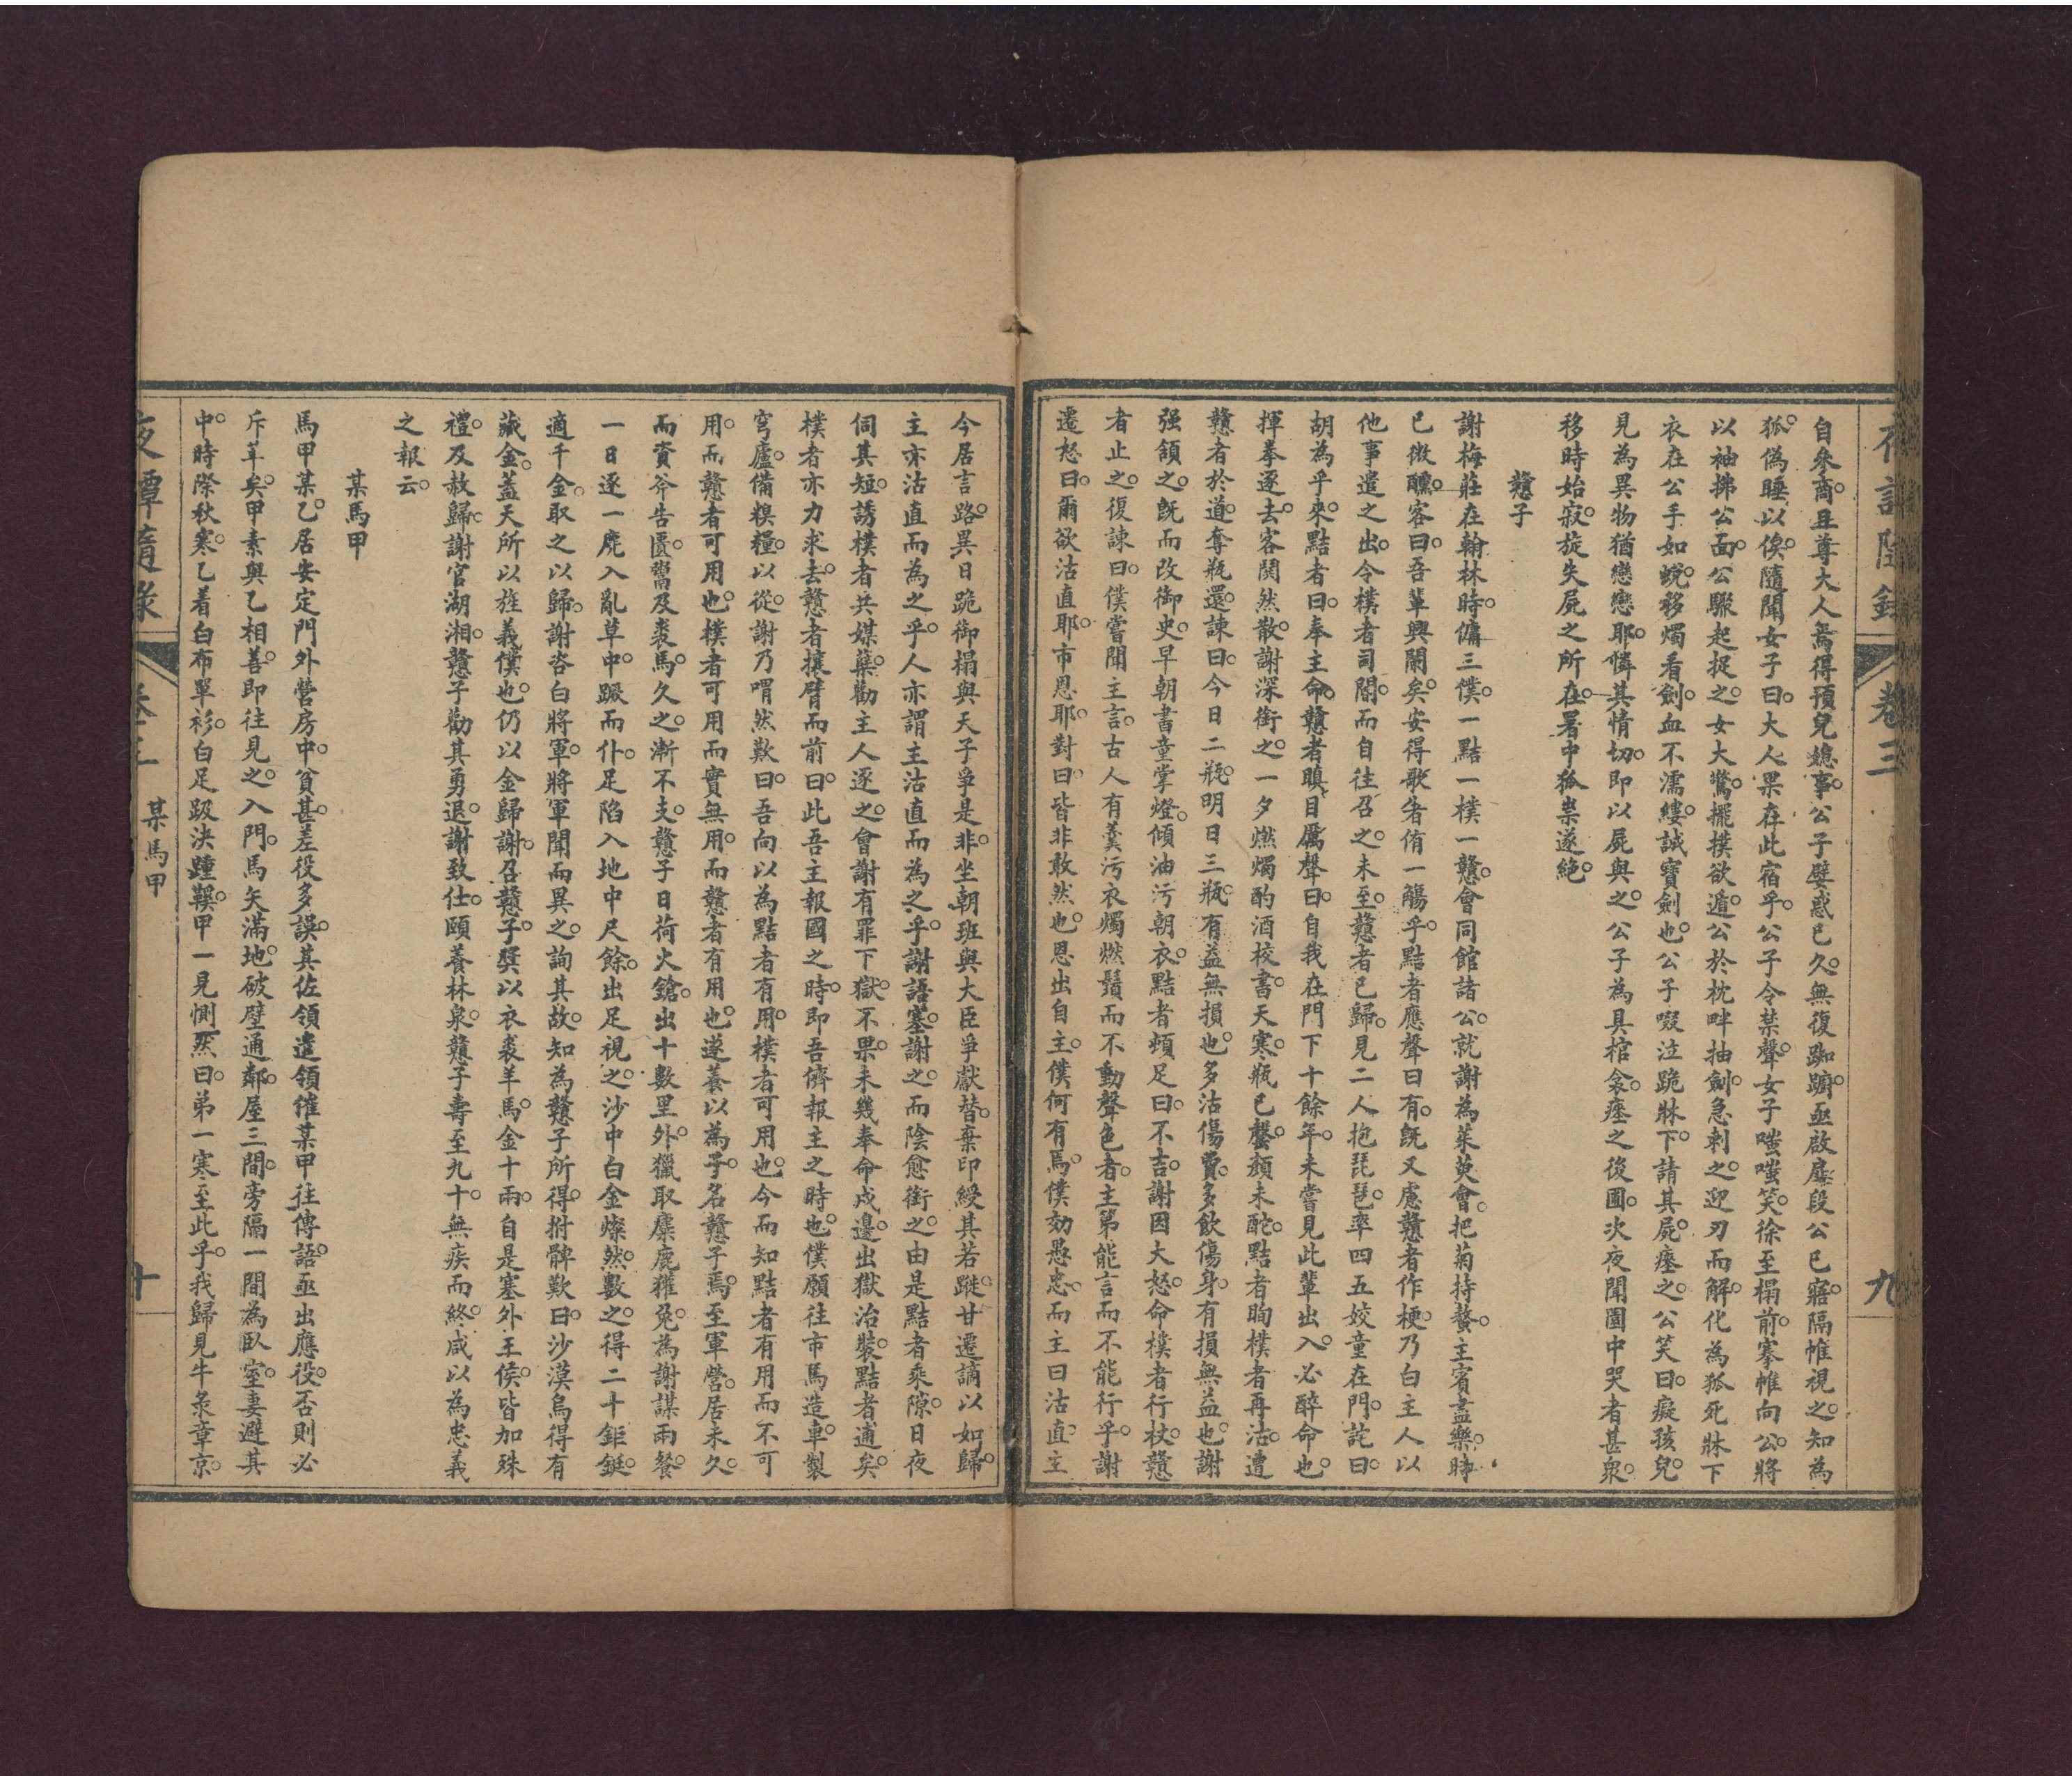 卷三
九
自來商且尊大人焉得預兒媳事公子嬖惑已久無復踟躕亟啟扉段公已寤隔帷視之知為
狐偽睡以俟隨聞女子曰大人果在此宿乎公子令禁聲女子嗤嗤笑徐至榻前搴帷向公將
以袖拂公面公驟起捉之女大驚擺撲欲遁公於枕畔抽劍急刺之迎刃而解化為狐死牀下
衣在公手如蛻移燭看劍血不濡縷誠寶劍也公子啜泣跪牀下請其屍瘞之公笑曰癡孩兒
見為異物猶戀戀耶憐其情切即以屍與之公子為具棺衾瘞之後園次夜聞園中哭者甚衆
移時始寂旋失屍之所在署中狐祟遂絕
戇子
謝梅莊在翰林時傭三僕一黠一樸一戇會同館諸公就謝為茱萸會把菊持螯主賓盡樂時
已微醺客曰吾輩興闌矣安得歌者侑一觴乎黠者應聲曰有既又慮戇者作梗乃白主人以
他事遣之出令樸者司閽而自往召之未至戇者已歸見二人抱琵琶率四五姣童在門詫曰
胡為乎來黠者曰奉主命戇者瞋目厲聲曰自我在門下十餘年未嘗見此輩出入必醉命也
揮拳逐去客鬨然散謝深銜之一夕燃燭酌酒校書天寒瓶已罄顏未酡黠者眴樸者再沽遭
戇者於道奪瓶還諫曰今日二瓶明日三瓶有益無損也多沽傷費多飲傷身有損無益也謝
强頷之既而改御史早朝書童掌燈傾油污朝衣黠者頓足曰不吉謝因大怒命樸者行杖戇
者止之復諫曰僕嘗聞主言古人有羹污衣燭燃鬚而不動聲色者主第能言而不能行乎謝
遷怒曰爾欲沽直耶市恩耶對曰皆非敢然也恩出自主僕何有焉僕効愚忠而主曰沽直主
今居言路異日跪御榻與天子爭是非坐朝班與大臣爭獻替棄印綬其若蹝甘遷謫以如歸
主亦沽直而為之乎人亦謂主沽直而為之乎謝語塞謝之而陰愈銜之由是黠者乘隙日夜
伺其短誘樸者共媒蘖勸主人逐之會謝有罪下獄不果未幾奉命戍邊出獄治裝黠者逋矣
樸者亦力求去戇者攘臂而前曰此吾主報國之時即吾儕報主之時也僕願往市馬造車製
穹廬備糗糧以從謝乃喟然歎曰吾向以為黠者有用樸者可用也今而知黠者有用而不可
用而戇者可用也樸者可用而實無用而戇者有用也遂養以為子名戇子焉至軍營居未久
而資斧告匱鬻及裘馬久之漸不支戇子日荷火鎗出十數里外獵取麋鹿獲兔為謝謀兩餐
一日逐一麂入亂草中蹶而仆足陷入地中尺餘出足視之沙中白金燦然數之得二十鉅鋌
適千金取之以歸謝咨白將軍將軍聞而異之詢其故知為戇子所得拊髀歎曰沙漠烏得有
藏金蓋天所以旌義僕也仍以金歸謝召戇子獎以衣裘羊馬金十兩自是塞外王侯皆加殊
禮及赦歸謝官湖湘戇子勸其勇退謝致仕頤養林泉戇子壽至九十無疾而終咸以為忠義
之報云
某馬甲
馬甲某乙居安定門外營房中貧甚差役多誤其佐領遣領催某甲往傳語亟出應役否則必
斥革矣甲素與乙相善即往見之入門馬矢滿地破壁通鄰屋三間旁隔一間為臥室妻避其
中時際秋寒乙着白布單衫白足趿決踵鞵甲一見惻然曰弟一寒至此乎我歸見牛彔章京
夜譚隨錄
卷三
某馬甲
十